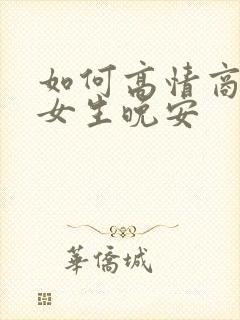 如何高情商
女生晚安
華僑城